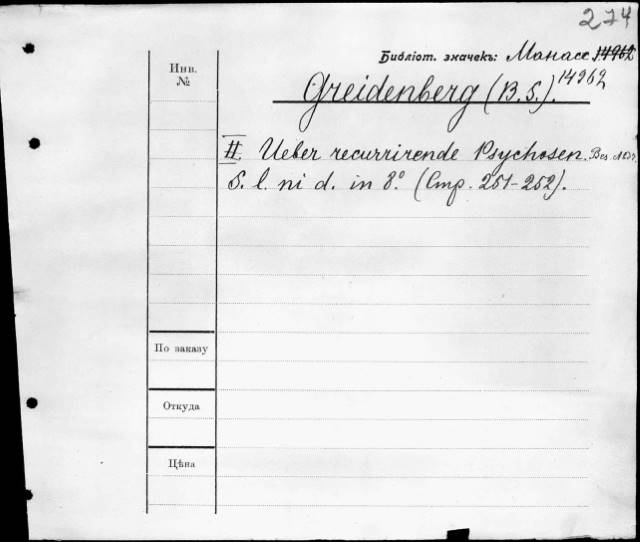 274
Библіот. значекъ: Манасс 14962
14962
Инв.
№
Greidenberg (B. S.).
II. Ueber recurrirende Psychosen.
S. l. ni d. in 8.° (Стр. 251-252).
По заказу
Откуда
Цѣна